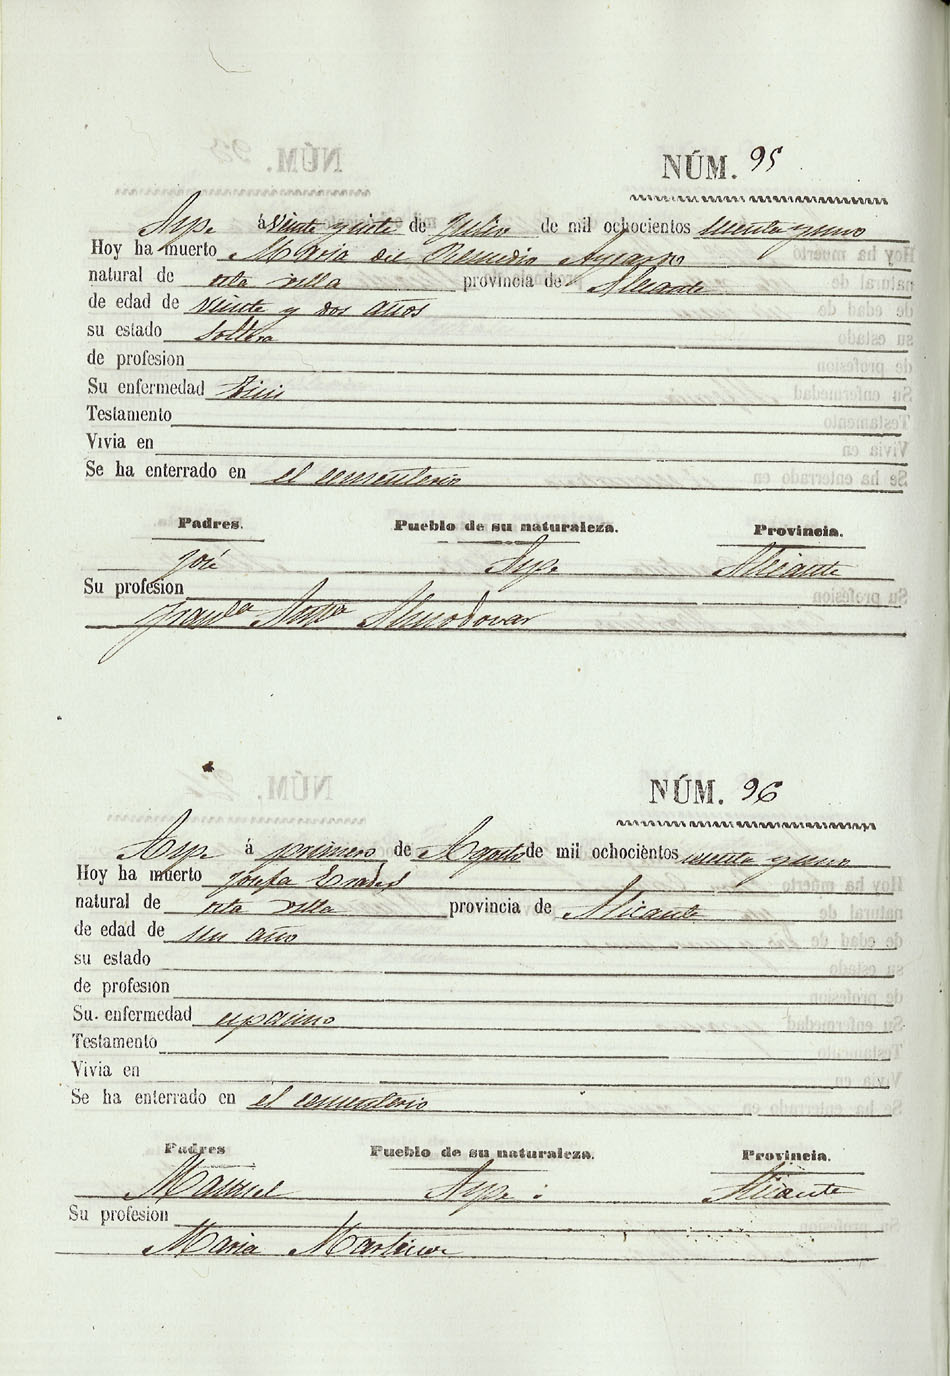 NÚM. 95
Aspe á veinte y siete de Julio de mil ochocientos setenta y uno
Hoy ha muerto Maria del Remedio
natural de esta villa provincia de Alicante
de edad de veinte y dos años
su estado Soltera
de profesion
Su enfermedad Tisis
Testamento
Vivia en
Se ha enterrado en el cementerio
Padres. Pueblo de su naturaleza. Provincia.
José Aspe Alicante
Su profesion
Almodovar
NÚM. 96
Aspe á primero de Agosto de mil ochocientos setenta y uno
Hoy ha muerto Josefa
natural de esta villa provincia de Alicante
de edad de un año
su estado
de profesion
Su. enfermedad espasmo
Testamento
Vivia en
Se ha enterrado en el cementerio
Padres Pueblo de su naturaleza. Provincia.
Manuel Aspe Alicante
Su profesion
Maria Martinez